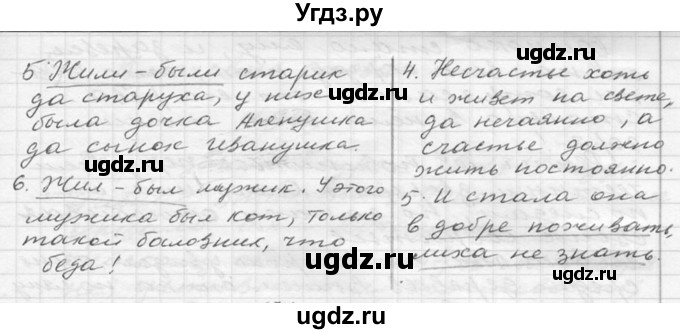 Угдз.ру
5. Жили-были старик
да старуха, у них
была дочка Аленушка
да сынок Иванушка.
6. Жил-был мужик. У этого
мужика был кот, только
такой баловник, что
беда!
4. Несчастье хоть
и живет на свете,
да нечаянно, а
счастье должно
жить постоянно.
5. И стала она
в добре поживать,
лиха не знать.
©гдз.ру
©гдз.ру
©гдз.ру
©гдз.ру
©гдз.ру
©гдз.ру